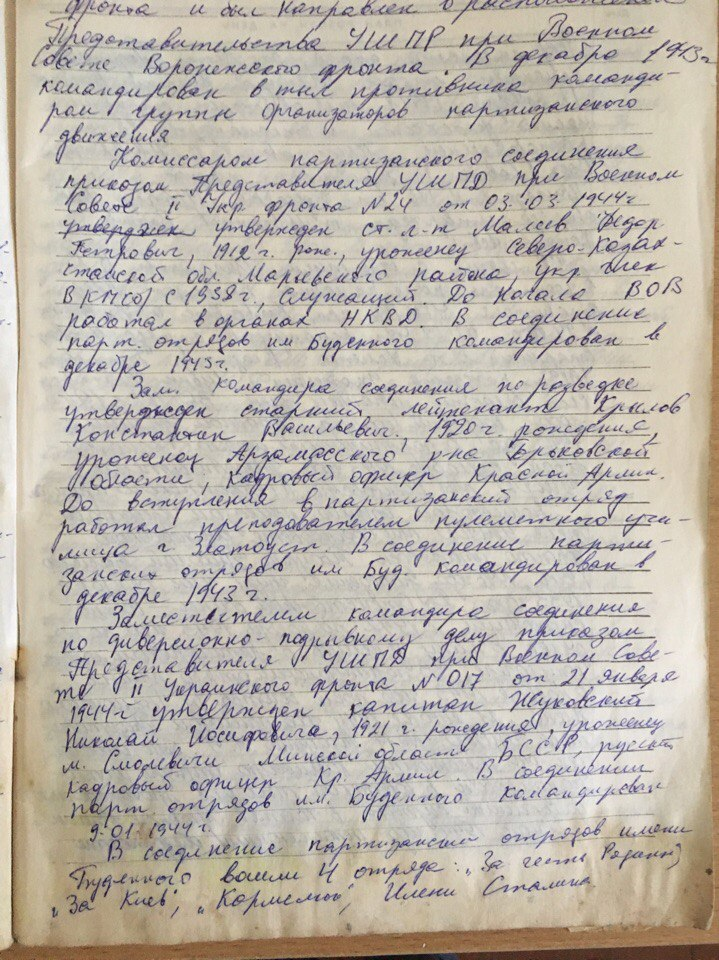 фронта и был направлен в
Представительства УШПР при Военном
Совете Воронежского фронта. В декабре 1943г
командирован в тыл противника команди-
ром группы организаторов партизанского
движения
Комиссаром партизанского соединения
приказом Представителя УШПД при Военном
Совете II Укр фронта N24 от 03.03.1944г
утвержден ст. л-т Малев Федор
Петрович, 1912 г. рожд., уроженец Северо-Казах-
станской обл. Марьевского района, укр. член
ВКП(б) с 1938г., Служащий. До начала ВОВ
работал в органах НКВД. В соединение
парт. отрядов им Буденного командирован в
декабре 1943г.
Зам. командира соединения по разведке
утвержден старший лейтенант Крылов
Константин Васильевич, 1920г. рождения,
уроженец Арзамасского р-на Горьковской
области, кадровый офицер Красной Армии.
До вступления в партизанский отряд
работал преподователем пулеметного учи-
лища г Златоуст. В соединение парти-
занских отрядов им Буд. командирован в
декабре 1943 г.
Заместителем командира соединения
по диверсионно-подрывному делу приказом
Представителя УШПД при Военном Сове-
те II Украинского фронта N 017 от 21 января
1944г утвержден капитан Жуковский
Николай Иосифович, 1921 г. рождения, уроженец
м. Смолевичи Минской области БССР, русский
кадровый офицер Кр. Армии. В соединении
парт. отрядов им. Буденного командирован
9.01.1944г.
В соединение партизанских отрядов имени
Буденного вошли 4 отряда: „За честь Родины",
„За Киев", Имени Сталина.